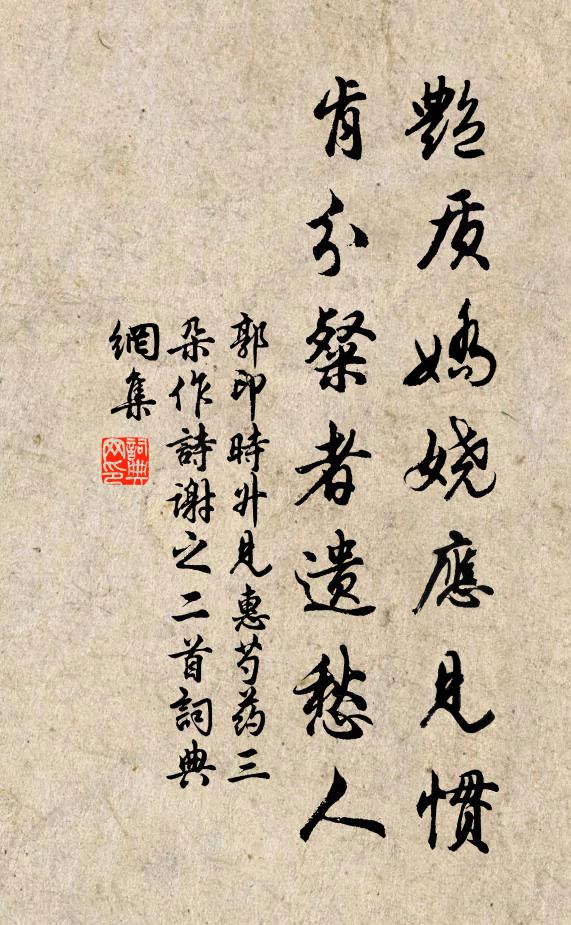 艷质嬌娆應見慣
肯分粲者遺愁人
郭印時升見惠芍药三
朵作詩谢之二首詞典
網集
詞典网印